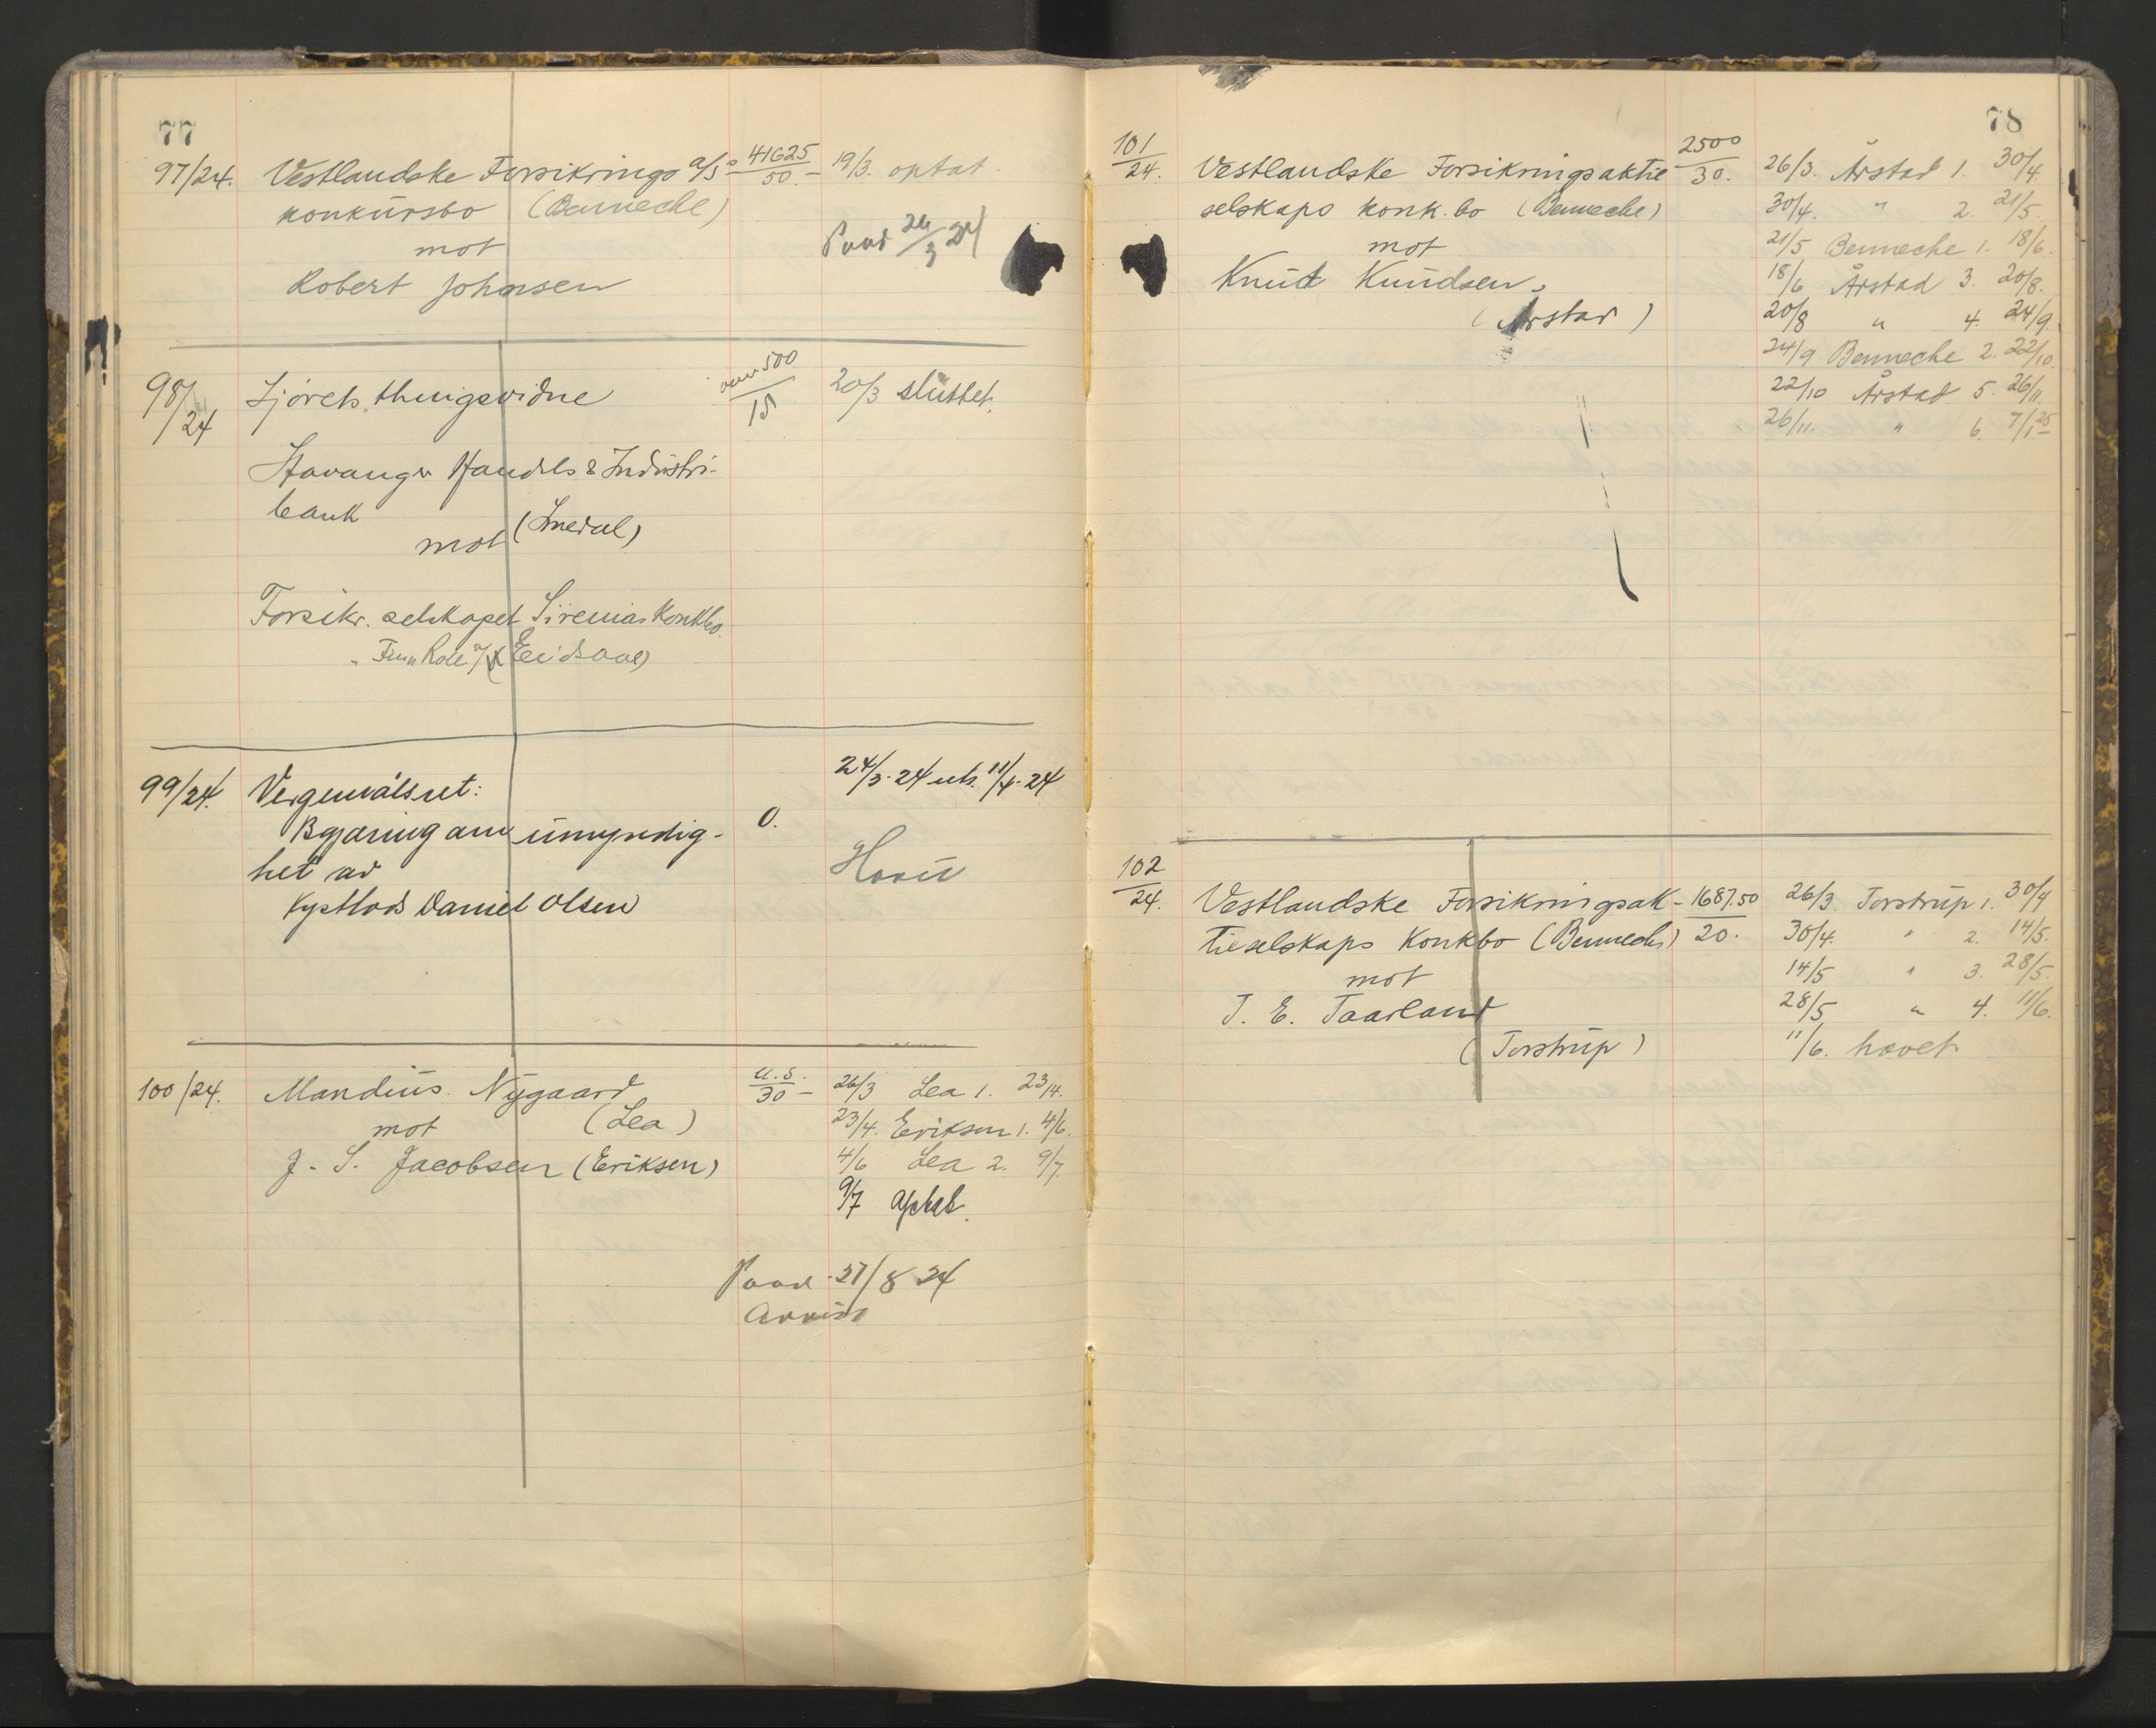 77
97/24. Vestlandske Forsikrings a/s 41625/50.- 19/3. optat.
konkursbo (Benneche)
mot
Robert Johnsen
26/3 24
98/24 Sjørets thingsvidne over 500/15 20/3 sluttet.
Stavanger Handels & Industri-
bank
mot (Smedal)
Forsikr. selskapet Sirenias Konkbo.
99/24. Vergemålsret: 24/3-24 uts. 11/4-24
Begjæring om umyndig- 0.
het av
Kystlods Daniel Olsen
Hævet
100/24. Mandius Nygaard u.s./30- 26/3 Lea 1. 23/4.
mot (Lea) 23/4. Eriksen 1. 4/6.
J. S. Jacobsen (Eriksen) 4/6 Lea 2. 9/7.
9/7 optat.
27/8 24
Avvist
78
101/24. Vestlandske Forsikringsaktie 2500/30. 26/3. Årstad 1. 30/4.
selskaps konk.bo (Benneche) 30/4. " 2. 21/5.
mot 21/5 Benneche 1. 18/6.
Knut Knudsen. 18/6 Årstad 3. 20/8.
(Årstad) 20/8 " 4. 24/9.
24/9 Benneche 2. 22/10.
22/10 Årstad 5. 26/11.
26/11. " 6. 7/1 25
102/24. Vestlandske Forsikringsak- 1687.50/20. 26/3. Torstrup 1. 30/4
tieselskaps Konkbo (Benneche) 30/4. " 2. 14/5.
mot 14/5 " 3. 28/5.
T. E. Taarland 28/5 " 4. 11/6.
(Torstrup) 11/6. hævet